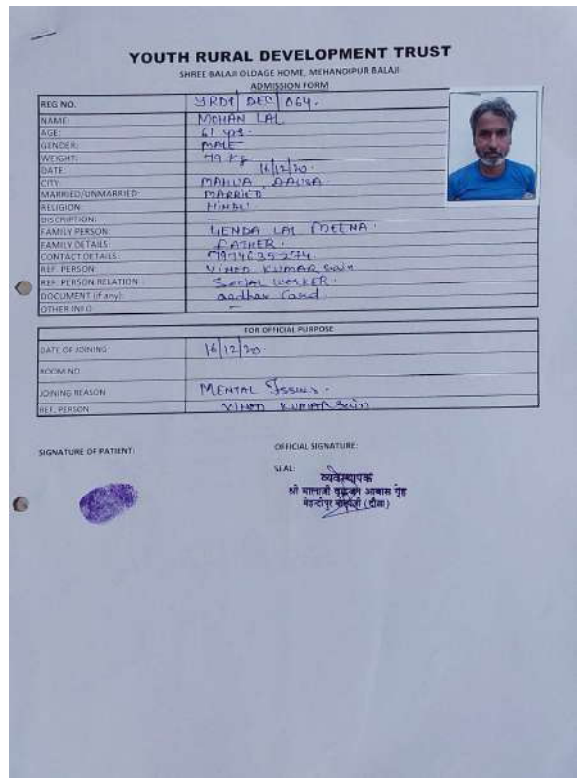 YOUTH RURAL DEVELOPMENT TRUST
SHREE BALAJI OLDAGE HOME, MEHANDIPUR BALAJI
ADMISSION FORM
REG NO. YRDT DEC 064.
NAME: MOHAN LAL
AGE: 61 yrs.
GENDER: MALE
WEIGHT: 79 Kg
DATE: 16/12/20.
CITY MAHUA DAUSA
MARRIED/UNMARRIED: MARRIED
RELIGION: HINDU
DISCRIPTION:
FAMILY PERSON: LAL MEENA
FAMILY DETAILS: FATHER.
CONTACT DETAILS:
REF. PERSON VINOD KUMAR
REF. PERSON RELATION SOCIAL WORKER.
DOCUMENT (if any): aadhar Card
OTHER INFO –
FOR OFFICIAL PURPOSE
DATE OF JOINING: 16/12/20.
ROOM NO
JOINING REASON MENTAL Issues.
REF. PERSON VINOD KUMAR
SIGNATURE OF PATIENT:
OFFICIAL SIGNATURE:
SEAL:
व्यवस्थापक
श्री बालाजी वृद्धजन आवास गृह
मेहन्दीपुर बालाजी (दौसा)